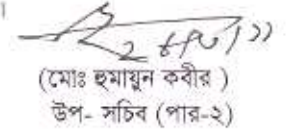 (মোঃ হুমায়ুন কবীর )
উপ- সচিব (পার-২)